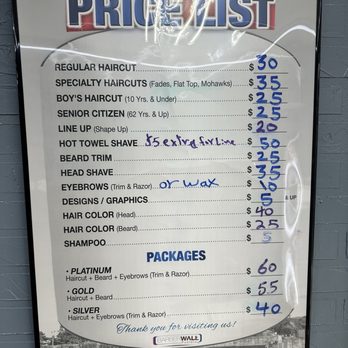 PRICE LIST
REGULAR HAIRCUT $ 30
SPECIALTY HAIRCUTS (Fades, Flat Top, Mohawks) $ 35
BOY'S HAIRCUT (10 Yrs. & Under) $ 25
SENIOR CITIZEN (62 Yrs. & Up) $ 25
LINE UP (Shape Up) $ 20
HOT TOWEL SHAVE $5 extra for Line $ 50
BEARD TRIM $ 25
HEAD SHAVE $ 35
EYEBROWS (Trim & Razor) or wax $ 10
DESIGNS / GRAPHICS $ 5 & UP
HAIR COLOR (Head) $ 40
HAIR COLOR (Beard) $ 25
SHAMPOO $ 5
PACKAGES
• PLATINUM $ 60
Haircut + Beard + Eyebrows (Trim & Razor)
• GOLD $ 55
Haircut + Beard
• SILVER $ 40
Haircut + Eyebrows (Trim & Razor)
Thank you for visiting us!
BARBERWALL